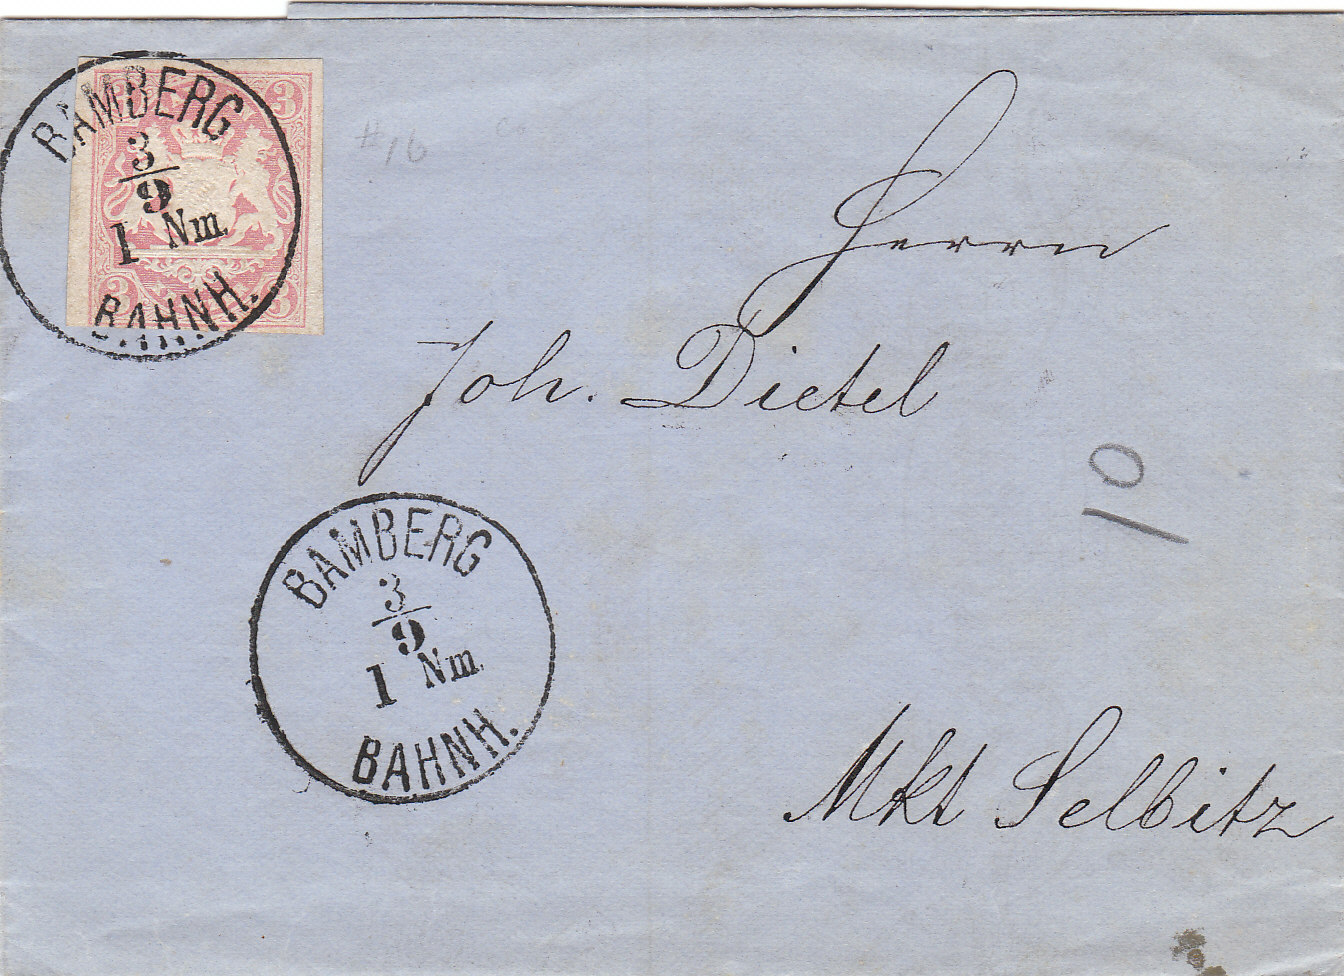 BAMBERG
3
9
1 Nm.
BAHNH.
3
3
3
#16
Herrn
Joh. Dietel
10
BAMBERG
3
9
1 Nm.
BAHNH.
Mkt Selbitz